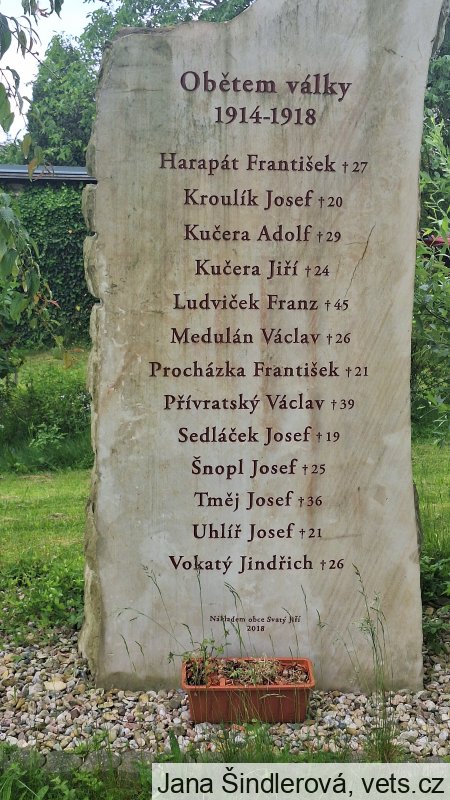 Obětem války
1914-1918
Harapát František †27
Kroulík Josef †20
Kučera Adolf †29
Kučera Jiří †24
Ludviček Franz †45
Medulán Václav †26
Procházka František †21
Přívratský Václav †39
Sedláček Josef †19
Šnopl Josef †25
Tměj Josef †36
Uhlíř Josef †21
Vokatý Jindřich †26
Nákladem obce Svatý Jiří
2018
Jana Šindlerová, vets.cz